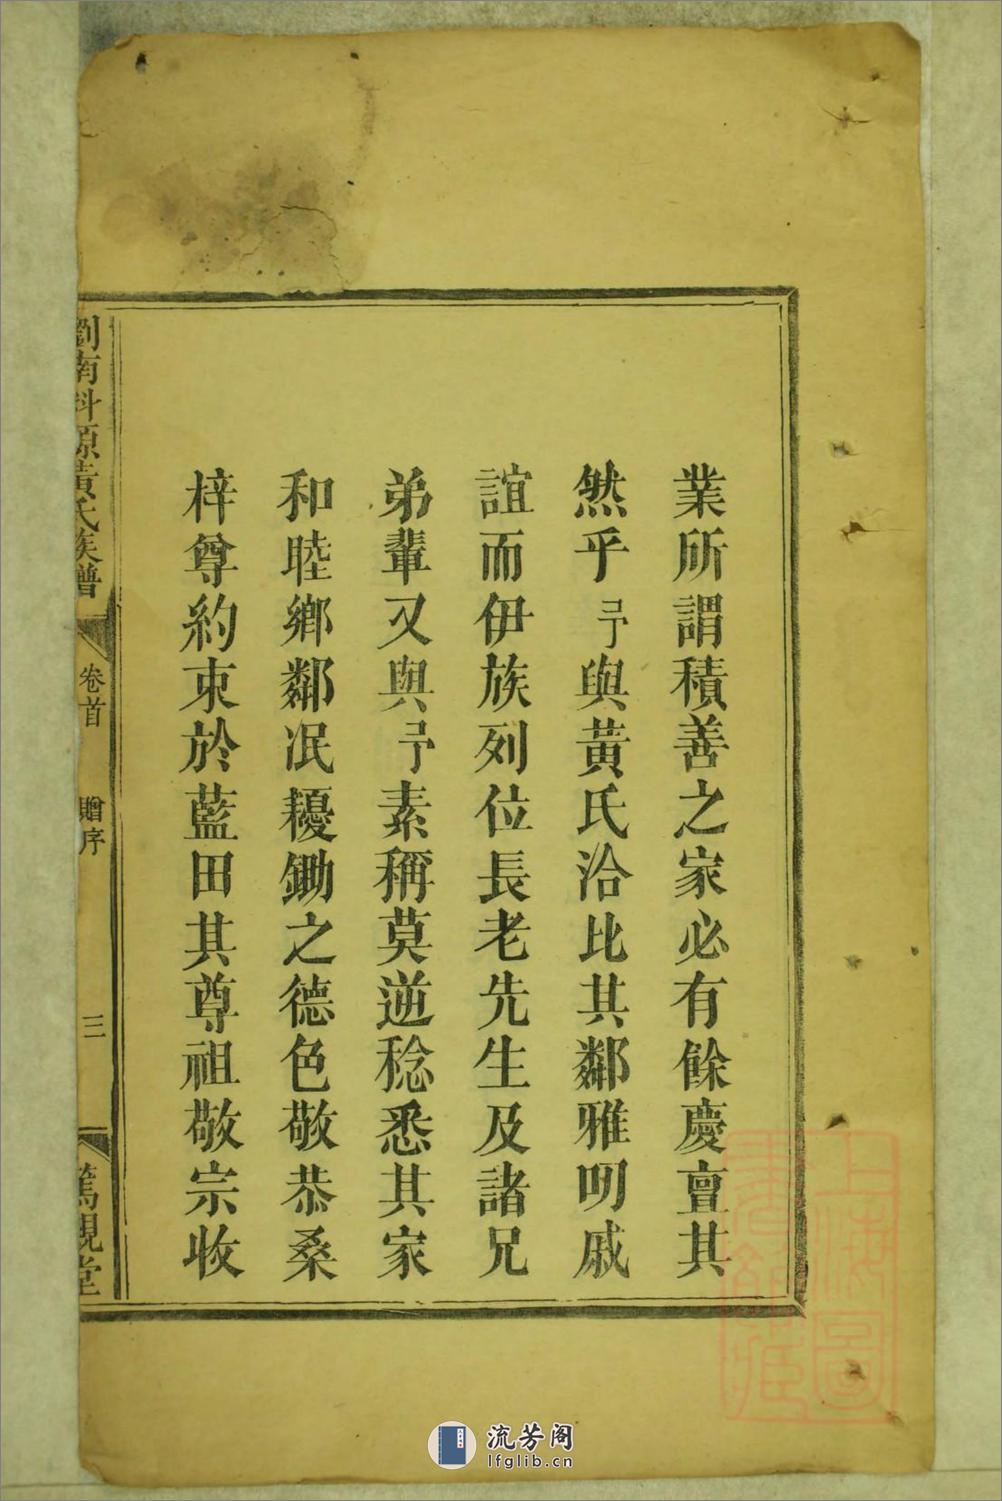 業所謂積善之家必有餘慶亶其
然乎予與黃氏洽比其鄰雅叨戚
誼而伊族列位長老先生及諸兄
弟輩又與予素稱莫逆稔悉其家
和睦鄉鄰冺耰鋤之德色敬恭桑
梓尊約束於藍田其尊祖敬宗收
劉南科源黃氏族譜
卷首
贈序
三
篤親堂
上海圖
書館藏
流芳阁
lfglib.cn